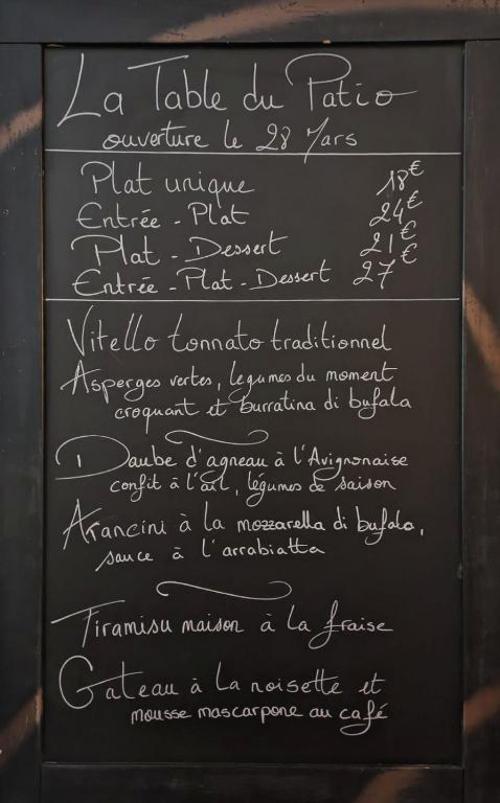 La Table du Patio
ouverture le 28 Mars
Plat unique 18€
Entrée - Plat 24€
Plat - Dessert 21€
Entrée - Plat - Dessert 27€
Vitello tonnato traditionnel
Asperges vertes, legumes du moment
croquant et burratina di bufala
Daube d'agneau à l'Avignonaise
confit à l'ail, légumes de saison
Arancini à la mozzarella di bufala,
sauce à l'arrabiatta
Tiramisu maison à la fraise
Gateau à la noisette et
mousse mascarpone au café